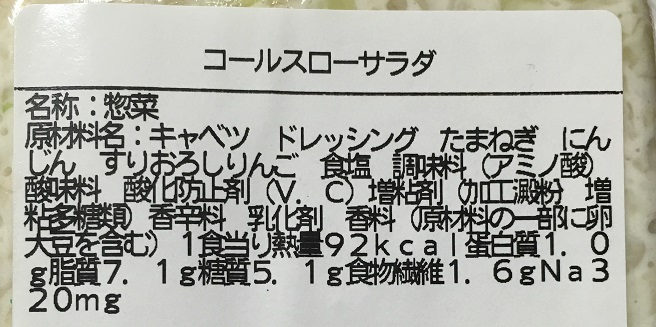 コールスローサラダ
名称：惣菜
原材料名：キャベツ　ドレッシング　たまねぎ　にん
じん　すりおろしりんご　食塩　調味料（アミノ酸）
酸味料　酸化防止剤（V．C）増粘剤（加工澱粉　増
粘多糖類）香辛料　乳化剤　香料（原材料の一部に卵
大豆を含む）1食当り熱量92kcal蛋白質1．0
g脂質7．1g糖質5．1g食物繊維1．6gNa3
20mg